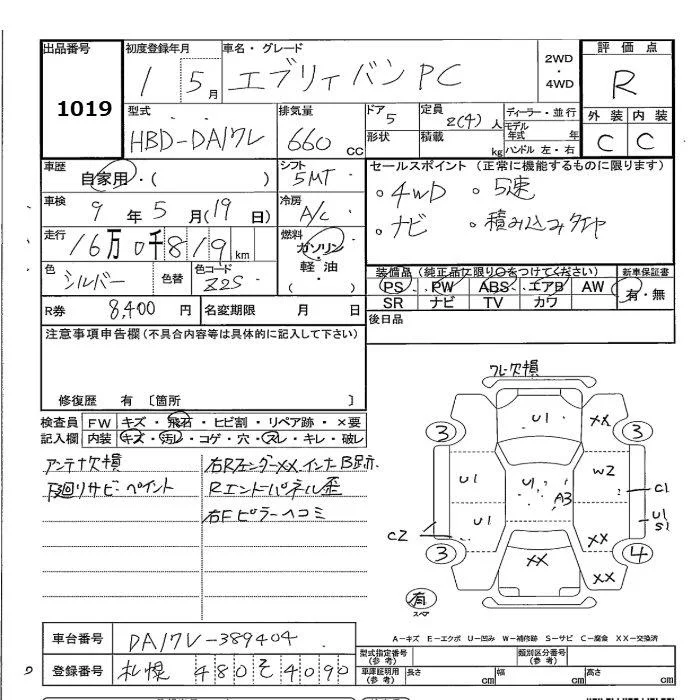 出品番号
1019
初度登録年月
1 5月
車名・グレード
エブリィバンPC
2WD
・
4WD
評価点
R
外装 内装
C C
型式
HBD-DA17V
排気量
660 CC
ドア 5
形状
定員 2(4)人
積載 kg
ディーラー・並行
モデル
年式 年
ハンドル 左・右
車歴
自家用・( )
シフト
5MT
車検
9年5月(19日)
冷房
A/C
走行
16万0千819km
燃料
ガソリン・
軽油
( )
色
シルバー
色替
色コード
Z2S
R券 8,400円
名変期限 月 日
セールスポイント(正常に機能するものに限ります)
。4WD 。5速
。ナビ 。積み込みタイヤ
装備品(純正品に限り○をつけてください)
新車保証書
PS PW ABS エアB AW
有・無
SR ナビ TV カワ
後日品
注意事項申告欄(不具合内容等は具体的に記入して下さい)
修復歴 有 〔箇所 〕
検査員
記入欄
FW キズ・飛石・ヒビ割・リペア跡・×要
内装 キズ・汚レ・コゲ・穴・スレ・キレ・破レ
アンテナ欠損
下廻りサビ・ペイント
右Rフェンダーxxインナー B跡
Rエンドパネル歪
右Fピラーヘコミ
フレーム欠損
U1
XX
3
3
U1
U1
W2
A3
C1
U1
U1
S1
C2
XX
3
4
XX
XX
有
スペア
A−キズ E−エクボ U−凹み W−補修跡 S−サビ C−腐食 XX−交換済
車台番号
DA17V-389404
登録番号
札幌 480 そ 4090
型式指定番号
(参考)
類別区分番号
(参考)
車庫証明用
(参考)
長さ cm
幅 cm
高さ cm